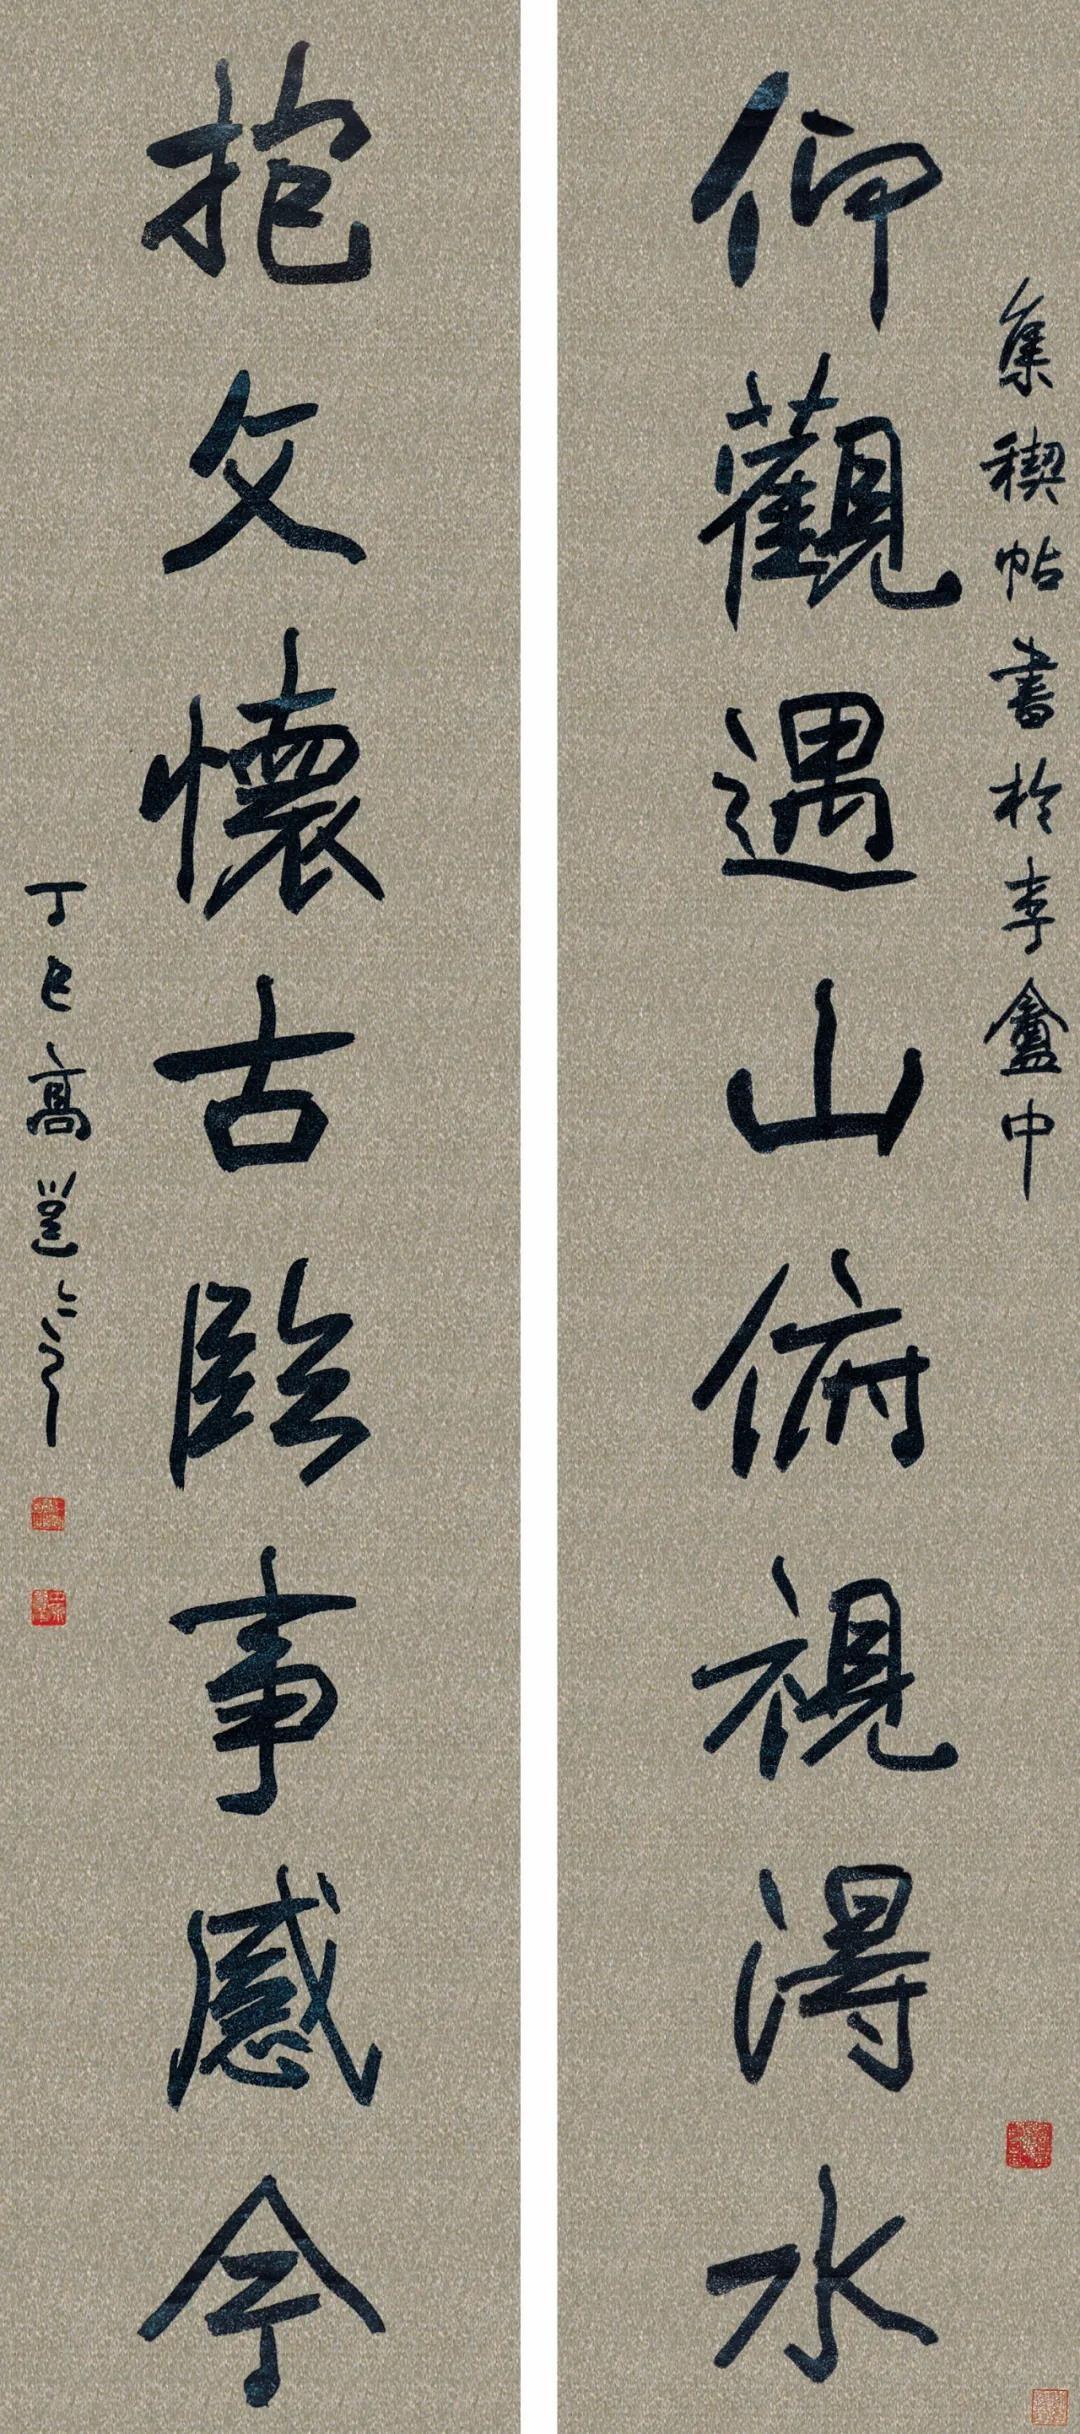 集稧帖書於李盦中
仰觀遇山俯視得水
抱文懷古臨事感今
丁巳高邕